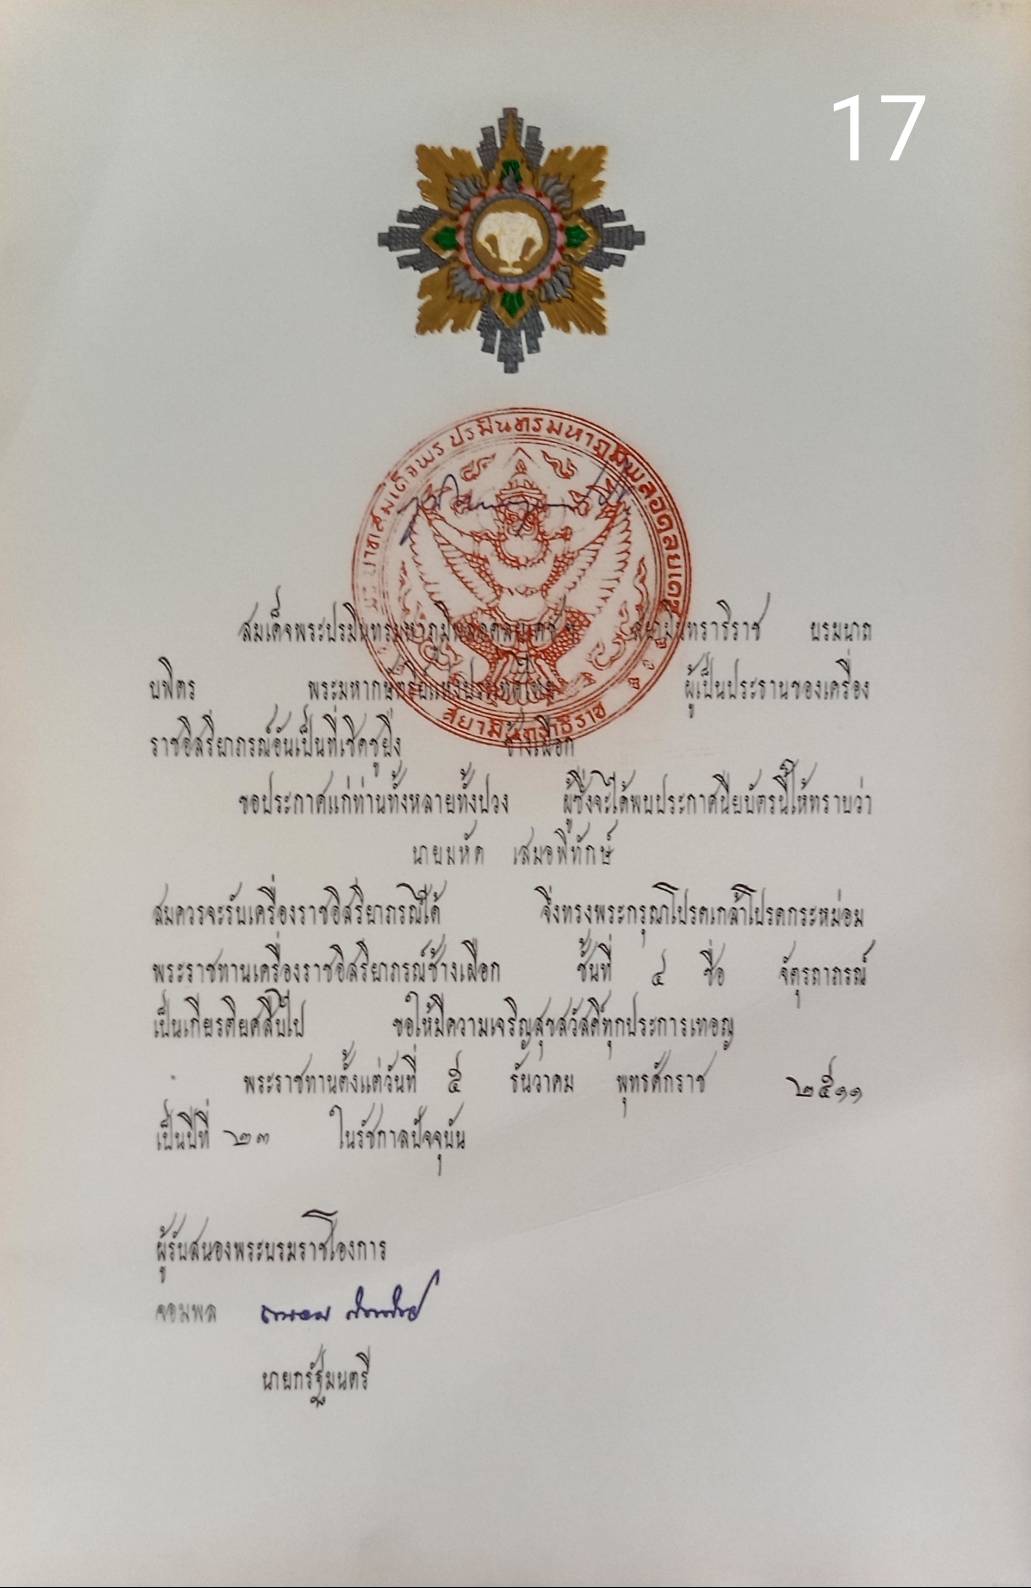 17
สมเด็จพระปรมินทรมหาภูมิพลอดุลยเดช สยามินทราธิราช บรมนาถ
บพิตร พระมหากษัตริย์แห่งประเทศไทย ผู้เป็นประธานของเครื่อง
ราชอิสริยาภรณ์อันเป็นที่เชิดชูยิ่ง ช้างเผือก
ขอประกาศแก่ท่านทั้งหลายทั้งปวง ผู้ซึ่งจะได้พบประกาศนียบัตรนี้ให้ทราบว่า
นายมหัด เสมอพิทักษ์
สมควรจะรับเครื่องราชอิสริยาภรณ์ได้ จึ่งทรงพระกรุณาโปรดเกล้าโปรดกระหม่อม
พระราชทานเครื่องราชอิสริยาภรณ์ช้างเผือก ชั้นที่ ๔ ชื่อ จัตุรถาภรณ์
เป็นเกียรติยศสืบไป ขอให้มีความเจริญสุขสวัสดิ์ทุกประการเทอญ
พระราชทานตั้งแต่วันที่ ๕ ธันวาคม พุทธศักราช ๒๕๑๑
เป็นปีที่ ๒๓ ในรัชกาลปัจจุบัน
ผู้รับสนองพระบรมราชโองการ
จอมพล
นายกรัฐมนตรี
สยามินทราธิราช